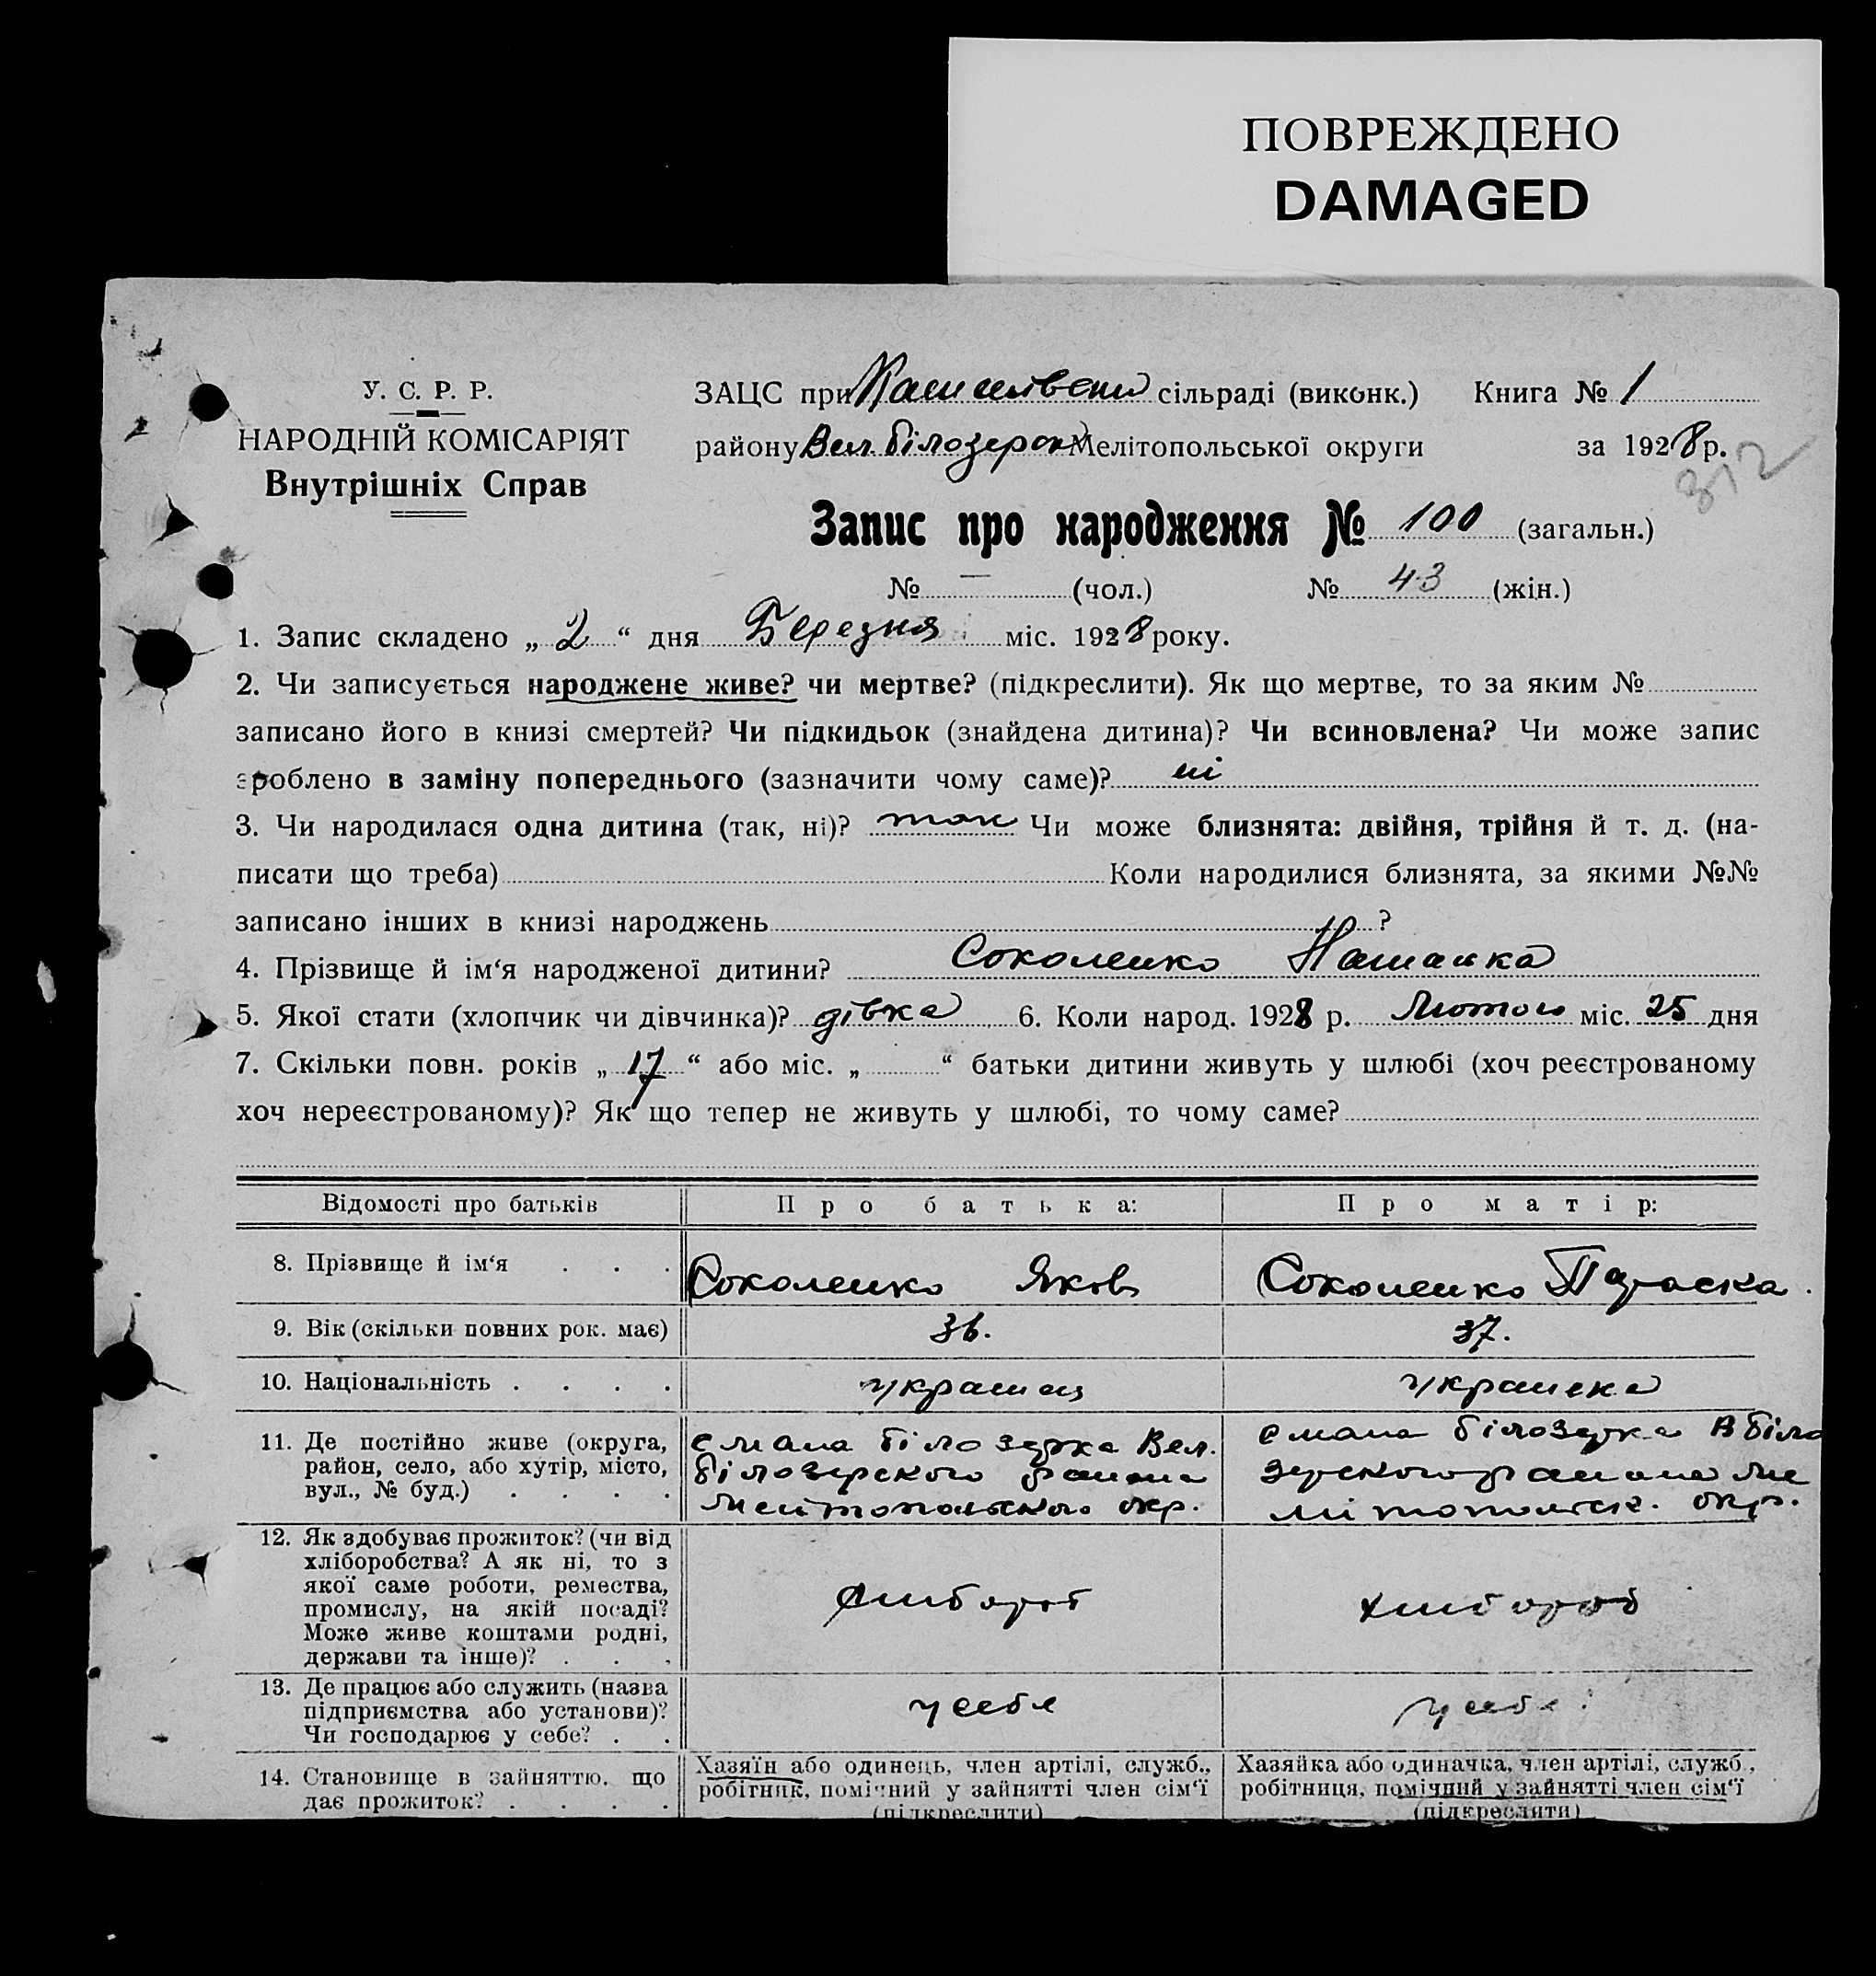 ПОВРЕЖДЕНО
DAMAGED
У. С. Р. Р.
НАРОДНІЙ КОМІСАРІЯТ
Внутрішніх Справ
ЗАЦС при сільраді (виконк.) Книга № 1
району Вел. Білозерск Мелітопольської округи за 1928 р.
312
Запис про народження № 100 (загальн.)
№ — (чол.) № 43 (жін.)
1. Запис складено „ 2 “ дня Березня міс. 1928 року.
2. Чи записується народжене живе? чи мертве? (підкреслити). Як що мертве, то за яким №
записано його в книзі смертей? Чи підкидьок (знайдена дитина)? Чи всиновлена? Чи може запис
зроблено в заміну попереднього (зазначити чому саме)? ні
3. Чи народилася одна дитина (так, ні)? так Чи може близнята: двійня, трійня й т. д. (на-
писати що треба) Коли народилися близнята, за якими №№
записано інших в книзі народжень ?
4. Прізвище й ім‘я народженої дитини? Соколенко Наталка
5. Якої стати (хлопчик чи дівчинка)? дівка 6. Коли народ. 1928 р. Лютого міс. 25 дня
7. Скільки повн. років „ 17 “ або міс. „ “ батьки дитини живуть у шлюбі (хоч реєстрованому
хоч нереєстрованому)? Як що тепер не живуть у шлюбі, то чому саме?
Відомості про батьків Про батька: Про матір:
8. Прізвище й ім‘я . . . Соколенко Яков Соколенко Параска.
9. Вік (скільки повних рок. має) 36. 37.
10. Національність . . . . украинец украинка
11. Де постійно живе (округа,
район, село, або хутір, місто,
вул., № буд.) . . . .
Білозерка Вел.
білозерского района
Мелітопольского окр.
Білозерка В Біло
зерского района Ме
літопольск. окр.
12. Як здобуває прожиток? (чи від
хліборобства? А як ні, то з
якої саме роботи, ремества,
промислу, на якій посаді?
Може живе коштами родні,
держави та інше)? . . .
хлібороб
хлібороб
13. Де працює або служить (назва
підприємства або установи)?
Чи господарює у себе? . .
у себе
у себе
14. Становище в зайняттю, що
дає прожиток? . . . .
Хазяїн або одинець, член артілі, служб.,
робітник, помічний у зайнятті член сім‘ї
(підкреслити)
Хазяйка або одиначка, член артілі, служб.,
робітниця, помічний у зайнятті член сім‘ї
(підкреслити)